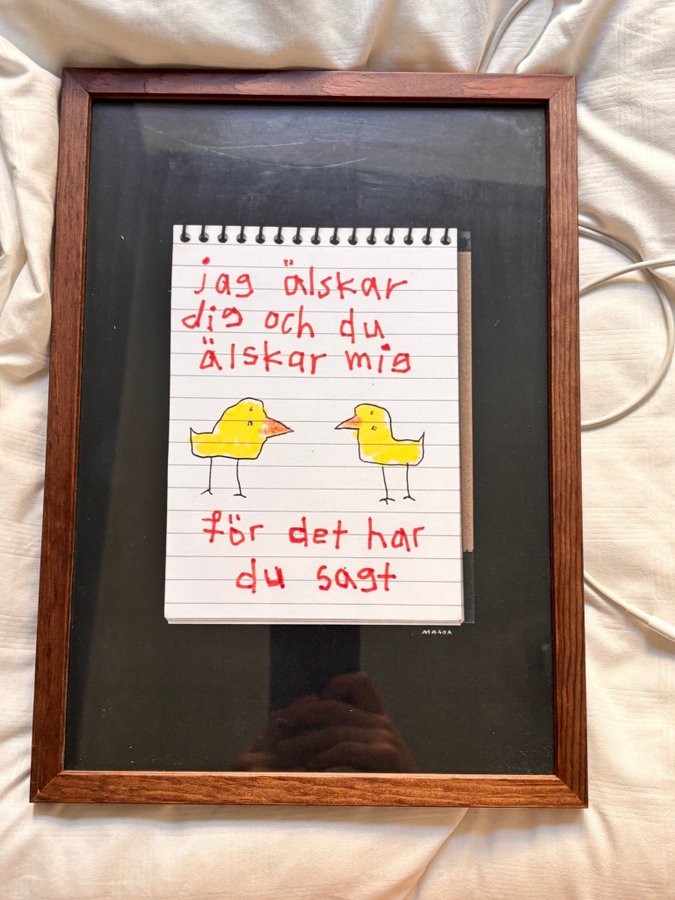 jag älskar
dig och du
älskar mig
för det har
du sagt